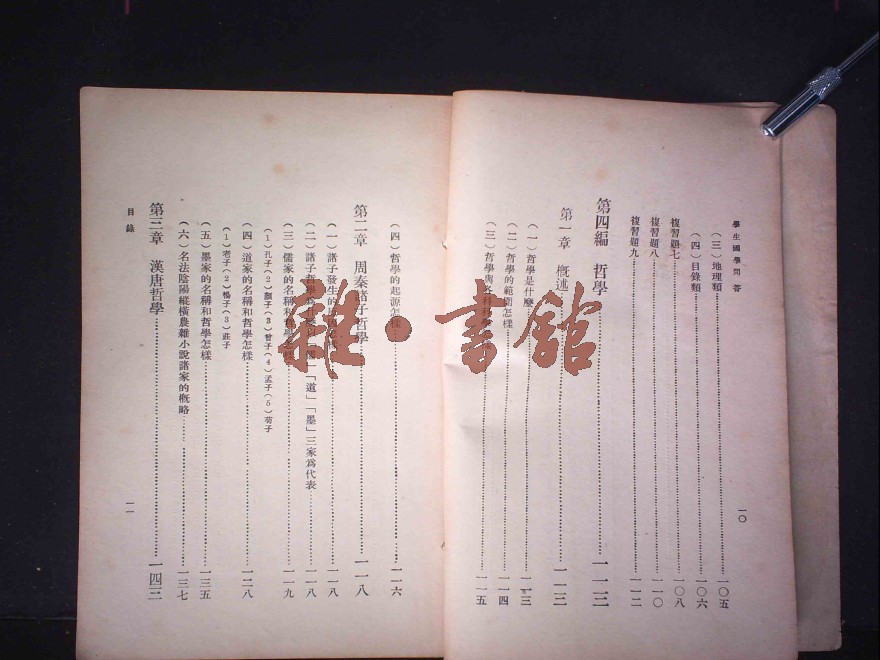 學生國學問答
一〇
（三）地理類……一〇五
（四）目錄類……一〇六
複習題七……一〇八
複習題八……一一〇
複習題九……一一二
第四編 哲學……一一三
第一章 概述……一一三
（一）哲學是什麼……一一三
（二）哲學的範圍怎樣……一一四
（三）哲學與各科科學……一一五
（四）哲學的起源怎樣……一一六
第二章 周秦諸子哲學……一一八
（一）諸子發生的……一一八
（二）諸子哲學爲什麼以「儒」「道」「墨」三家爲代表……一一八
（三）儒家的名稱和哲學怎樣……一一九
（1）孔子（2）顏子（3）曾子（4）孟子（5）荀子
（四）道家的名稱和哲學怎樣……一二八
（1）老子（2）楊子（3）莊子
（五）墨家的名稱和哲學怎樣……一三五
（六）名法陰陽縱橫農雜小說諸家的概略……一三七
第三章 漢唐哲學……一四三
目錄
一一
雜·書館